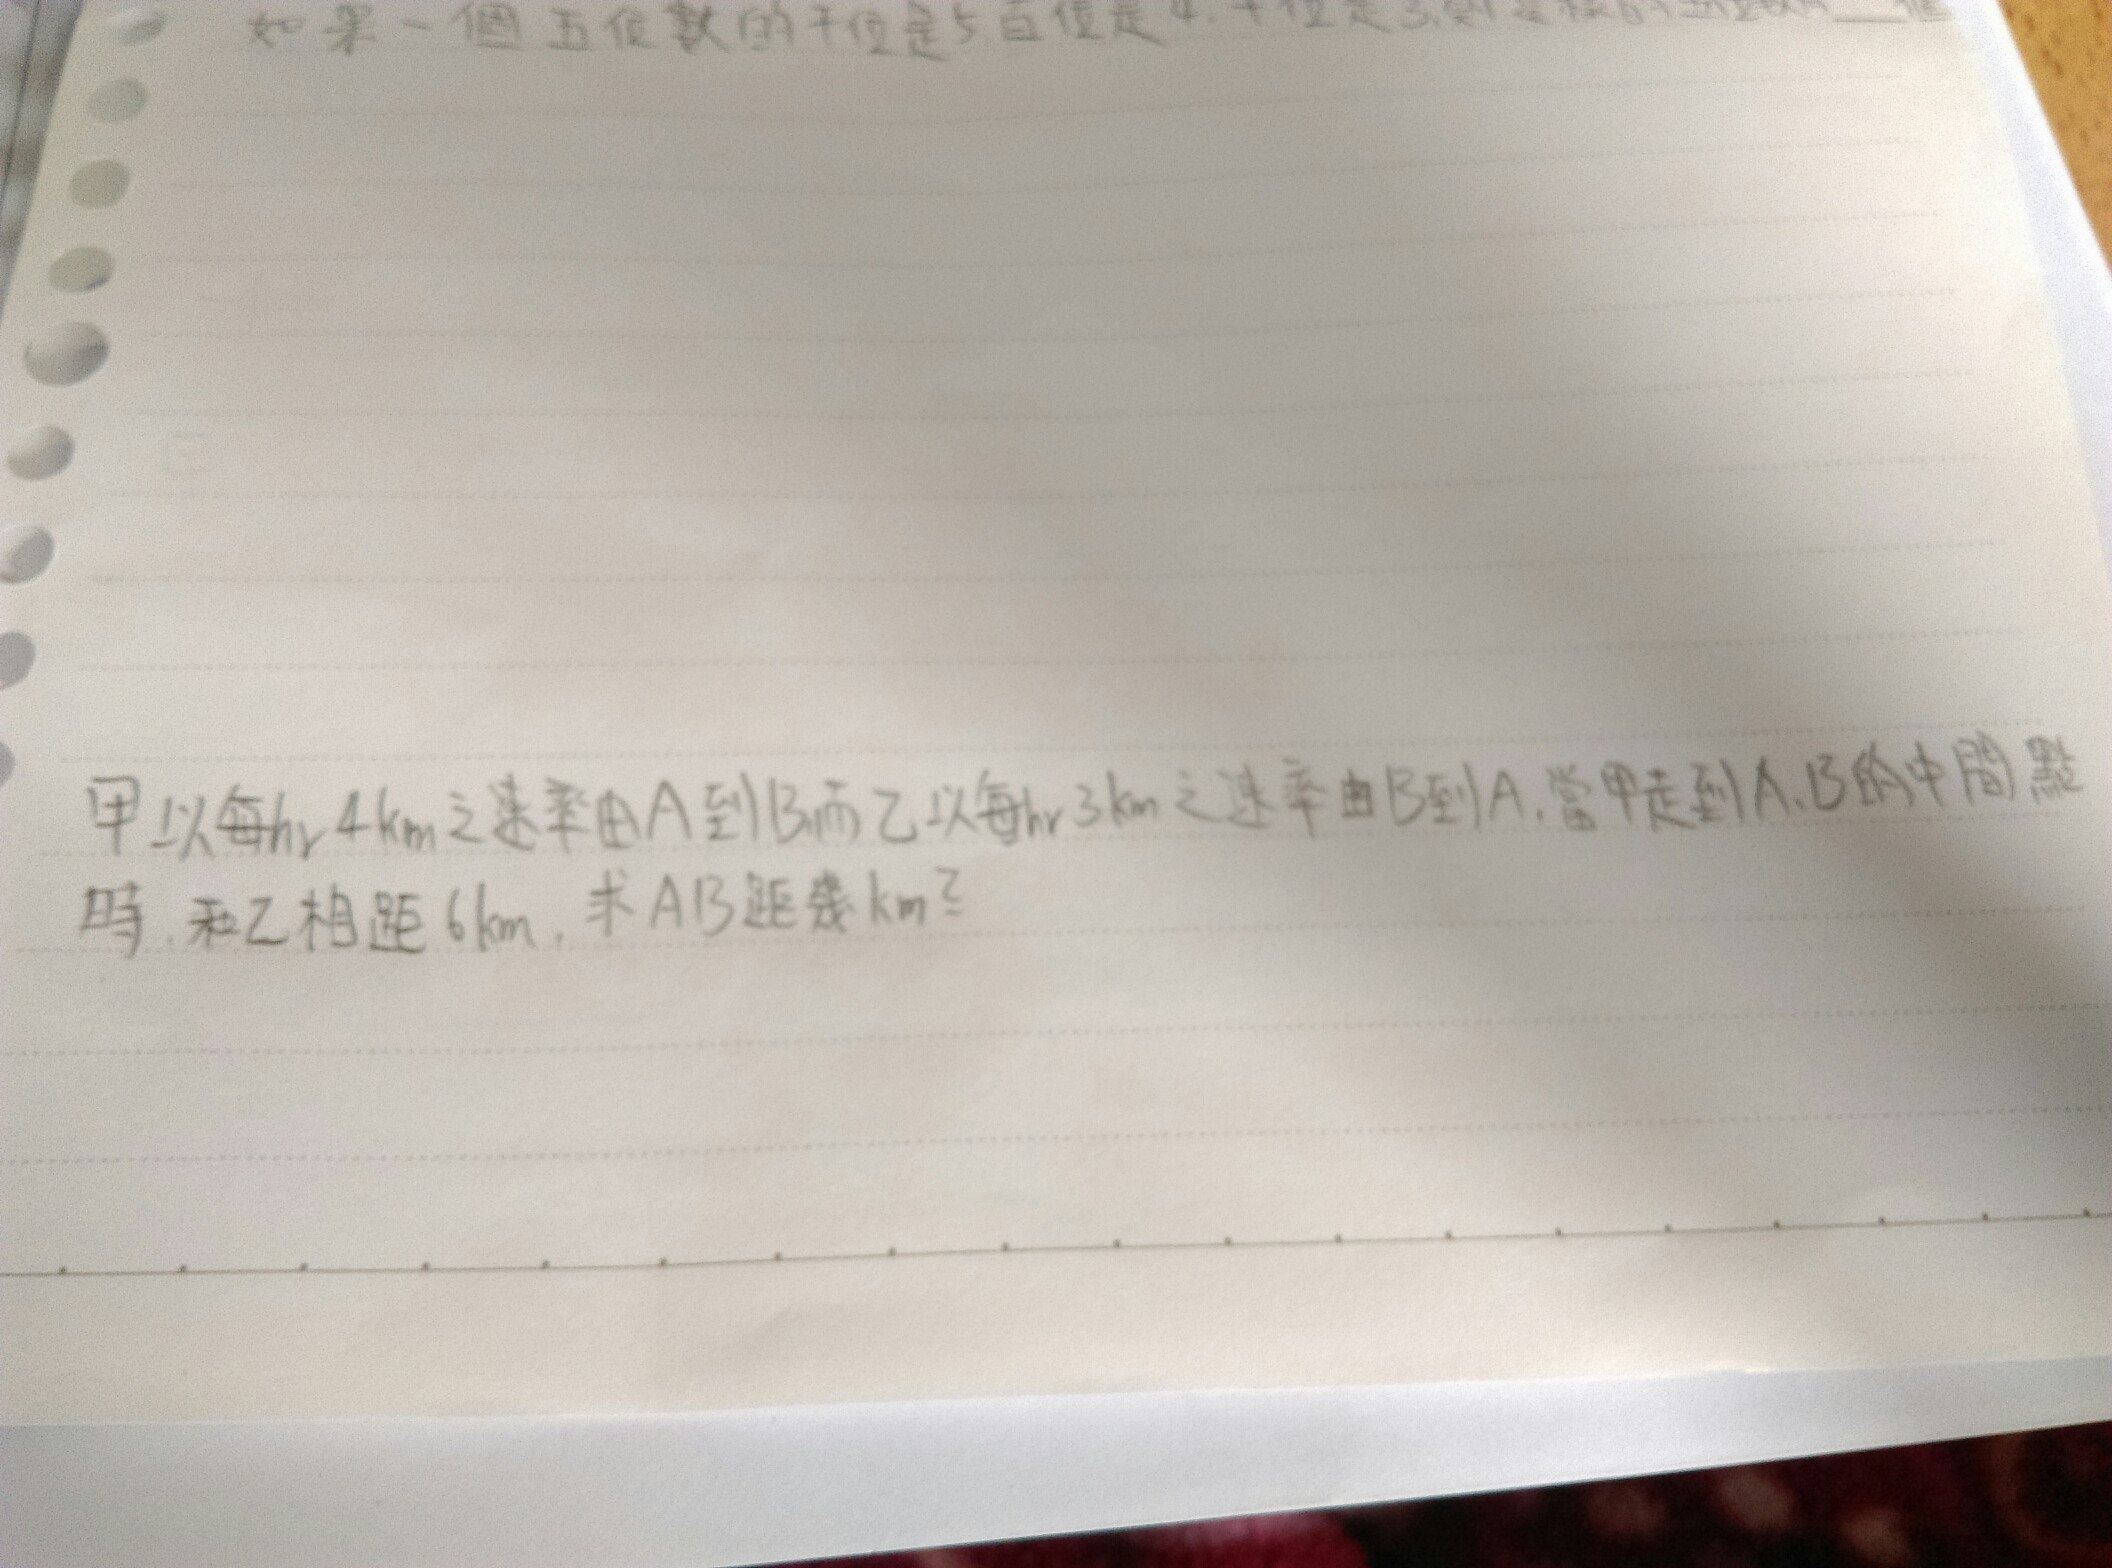 如果一個五位數的千位是5,百位是4,十位是3,則這樣的 個
甲以每hr 4km之速率由A到B,而乙以每hr 3km之速率由B到A,當甲走到A、B的中間點
時,和乙相距6km,求AB距幾km?